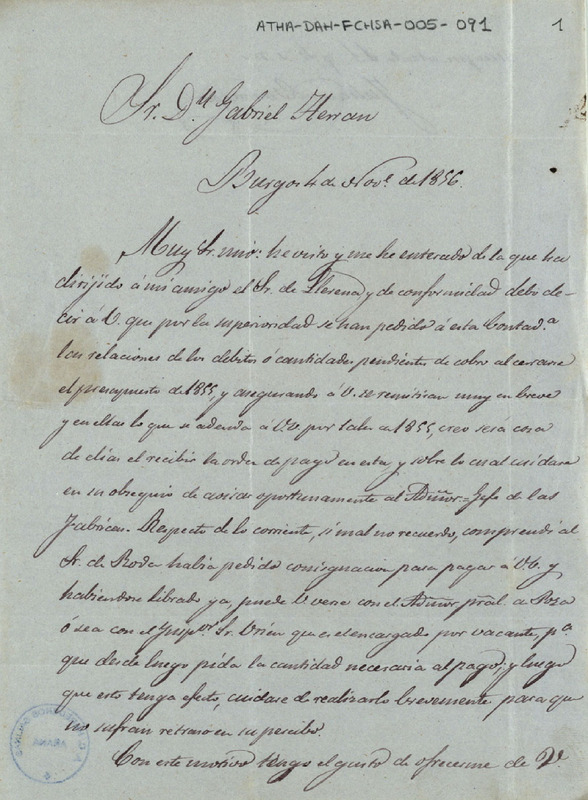 ATHA-DAH-FCHSA-005-091
1
Sr. Dn. Gabriel Herran
Burgos 4 de Nov.e de 1856.
Muy Sr. mio: he visto y me he enterado de la que ha
dirijido á mi amigo el Sr. de Llerena y de conformidad debo de-
cir á V. que por la superioridad se han pedido á esta Contad.a
las relaciones de los debitos ó cantidades pendientes de cobro al cerrarse
el presupuesto de 1855, y asegurando á V. se remitirán muy en breve
y en ellas lo que se adeuda á V.V. por sales en 1855, creo será cosa
de dias el recibir la orden de pago en esta, y sobre lo cual cuidaré
en su obsequio de avisar oportunamente al Admor-Gefe de las
Fabricas. Respecto de lo corriente, si mal no recuerdo, comprendí al
Sr. de Roda habia pedido consignacion para pagar á V.V. y
habiendose librado ya, puede V. verse con el Admor pral. de Poza
ó sea con el Ynsp.or Sr. que es el encargado por vacante, p.a
que desde luego pida la cantidad necesaria al pago, y luego
que esto tenga efecto, cuidase de realizarlo brevemente para que
no sufran retraso en su percibo.
Con este motivo tengo el gusto de ofrecerme de V.